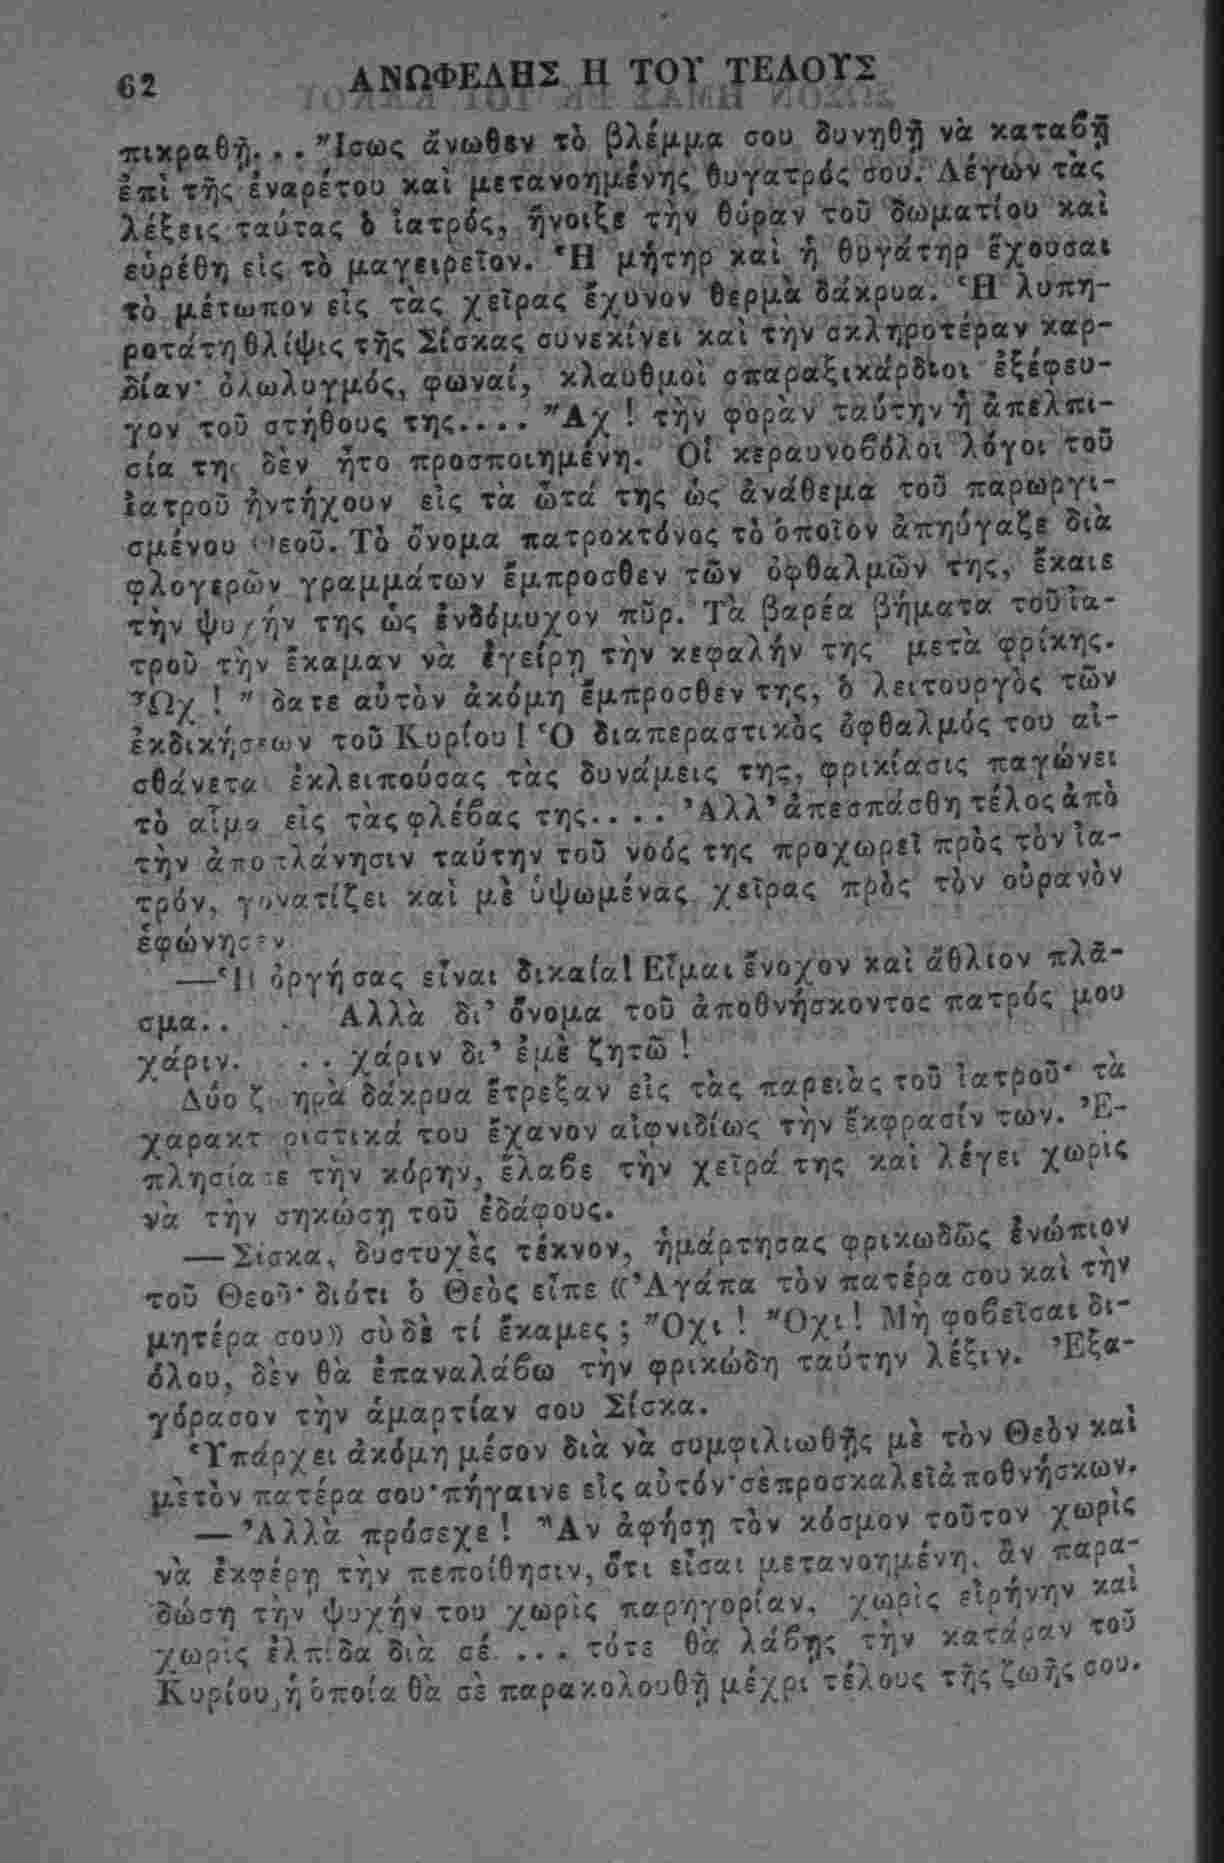 62 ΑΝΩΦΕΛΗΣ Η ΤΟΥ ΤΕΛΟΥΣ
πικραθῇ. . . Ἴσως ἄνωθεν τὸ βλέμμα σου δυνηθῇ νὰ καταβῇ
ἐπὶ τῆς ἐναρέτου καὶ μετανοημένης θυγατρός σου. Λέγων τὰς
λέξεις ταύτας ὁ ἰατρός, ἤνοιξε τὴν θύραν τοῦ δωματίου καὶ
εὑρέθη εἰς τὸ μαγειρεῖον. Ἡ μήτηρ καὶ ἡ θυγάτηρ ἔχουσαι
τὸ μέτωπον εἰς τὰς χεῖρας ἔχυνον θερμὰ δάκρυα. Ἡ λυπη-
ροτάτη θλίψις τῆς Σίσκας συνεκίνει καὶ τὴν σκληροτέραν καρ-
δίαν· ὀλωλυγμός, φωναί, κλαυθμοὶ σπαραξικάρδιοι ἐξέφευ-
γον τοῦ στήθους της.... Ἂχ ! τὴν φορὰν ταύτην ἡ ἀπελπι-
σία της δὲν ἦτο προσποιημένη. Οἱ κεραυνοβόλοι λόγοι τοῦ
ἰατροῦ ἠντήχουν εἰς τὰ ὦτά της ὡς ἀνάθεμα τοῦ παρωργι-
σμένου Θεοῦ. Τὸ ὄνομα πατροκτόνος τὸ ὁποῖον ἀπηύγαζε διὰ
φλογερῶν γραμμάτων ἔμπροσθεν τῶν ὀφθαλμῶν της, ἔκαιε
τὴν ψυχήν της ὡς ἐνδόμυχον πῦρ. Τὰ βαρέα βήματα τοῦ ἰα-
τροῦ τὴν ἔκαμαν νὰ ἐγείρῃ τὴν κεφαλήν της μετὰ φρίκης.
Ὢχ ! " δατε αὐτὸν ἀκόμη ἔμπροσθεν της, ὁ λειτουργὸς τῶν
ἐκδικήσεων τοῦ Κυρίου! Ὁ διαπεραστικὸς ὀφθαλμός του αἰ-
σθάνεται ἐκλειπούσας τὰς δυνάμεις της, φρικίασις παγώνει
τὸ αἷμα εἰς τὰς φλέβας της.... Ἀλλ' ἀπεσπάσθη τέλος ἀπὸ
τὴν ἀποπλάνησιν ταύτην τοῦ νοός της προχωρεῖ πρὸς τὸν ἰα-
τρόν, γονατίζει καὶ μὲ ὑψωμένας χεῖρας πρὸς τὸν οὐρανὸν
ἐφώνησεν
—Ἡ ὀργή σας εἶναι δικαία! Εἶμαι ἔνοχον καὶ ἄθλιον πλᾶ-
σμα.. . Αλλὰ δι' ὄνομα τοῦ ἀποθνήσκοντος πατρός μου
χάριν. . . χάριν δι' ἐμὲ ζητῶ !
Δύο ζωηρὰ δάκρυα ἔτρεξαν εἰς τὰς παρειὰς τοῦ ἰατροῦ· τὰ
χαρακτηριστικά του ἔχανον αἰφνιδίως τὴν ἔκφρασίν των. Ἐ-
πλησίασε τὴν κόρην, ἔλαβε τὴν χεῖρά της καὶ λέγει χωρὶς
νὰ τὴν σηκώσῃ τοῦ ἐδάφους.
—Σίσκα, δυστυχὲς τέκνον, ἡμάρτησας φρικωδῶς ἐνώπιον
τοῦ Θεοῦ· διότι ὁ Θεὸς εἶπε «Ἀγάπα τὸν πατέρα σου καὶ τὴν
μητέρα σου» σὺ δὲ τί ἔκαμες ; Ὄχι ! Ὄχι! Μὴ φοβεῖσαι δι-
όλου, δὲν θὰ ἐπαναλάβω τὴν φρικώδη ταύτην λέξιν. Ἐξα-
γόρασον τὴν ἁμαρτίαν σου Σίσκα.
Ὑπάρχει ἀκόμη μέσον διὰ νὰ συμφιλιωθῇς μὲ τὸν Θεὸν καὶ
μὲ τὸν πατέρα σου· πήγαινε εἰς αὐτόν· σὲ προσκαλεῖ ἀποθνήσκων.
—Ἀλλὰ πρόσεχε ! Ἂν ἀφήσῃ τὸν κόσμον τοῦτον χωρὶς
νὰ ἐκφέρῃ τὴν πεποίθησιν, ὅτι εἶσαι μετανοημένη, ἂν παρα-
δώσῃ τὴν ψυχήν του χωρὶς παρηγορίαν, χωρὶς εἰρήνην καὶ
χωρὶς ἐλπίδα διὰ σέ. ... τότε θὰ λάβῃς τὴν κατάραν τοῦ
Κυρίου, ἡ ὁποία θὰ σὲ παρακολουθῇ μέχρι τέλους τῆς ζωῆς σου.